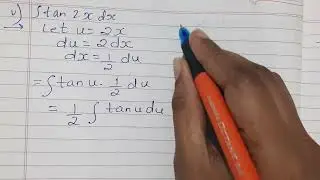 v) ∫tan 2x dx
Let u = 2x
du = 2dx
dx = 1/2 du
= ∫tan u · 1/2 du
= 1/2 ∫tan u du